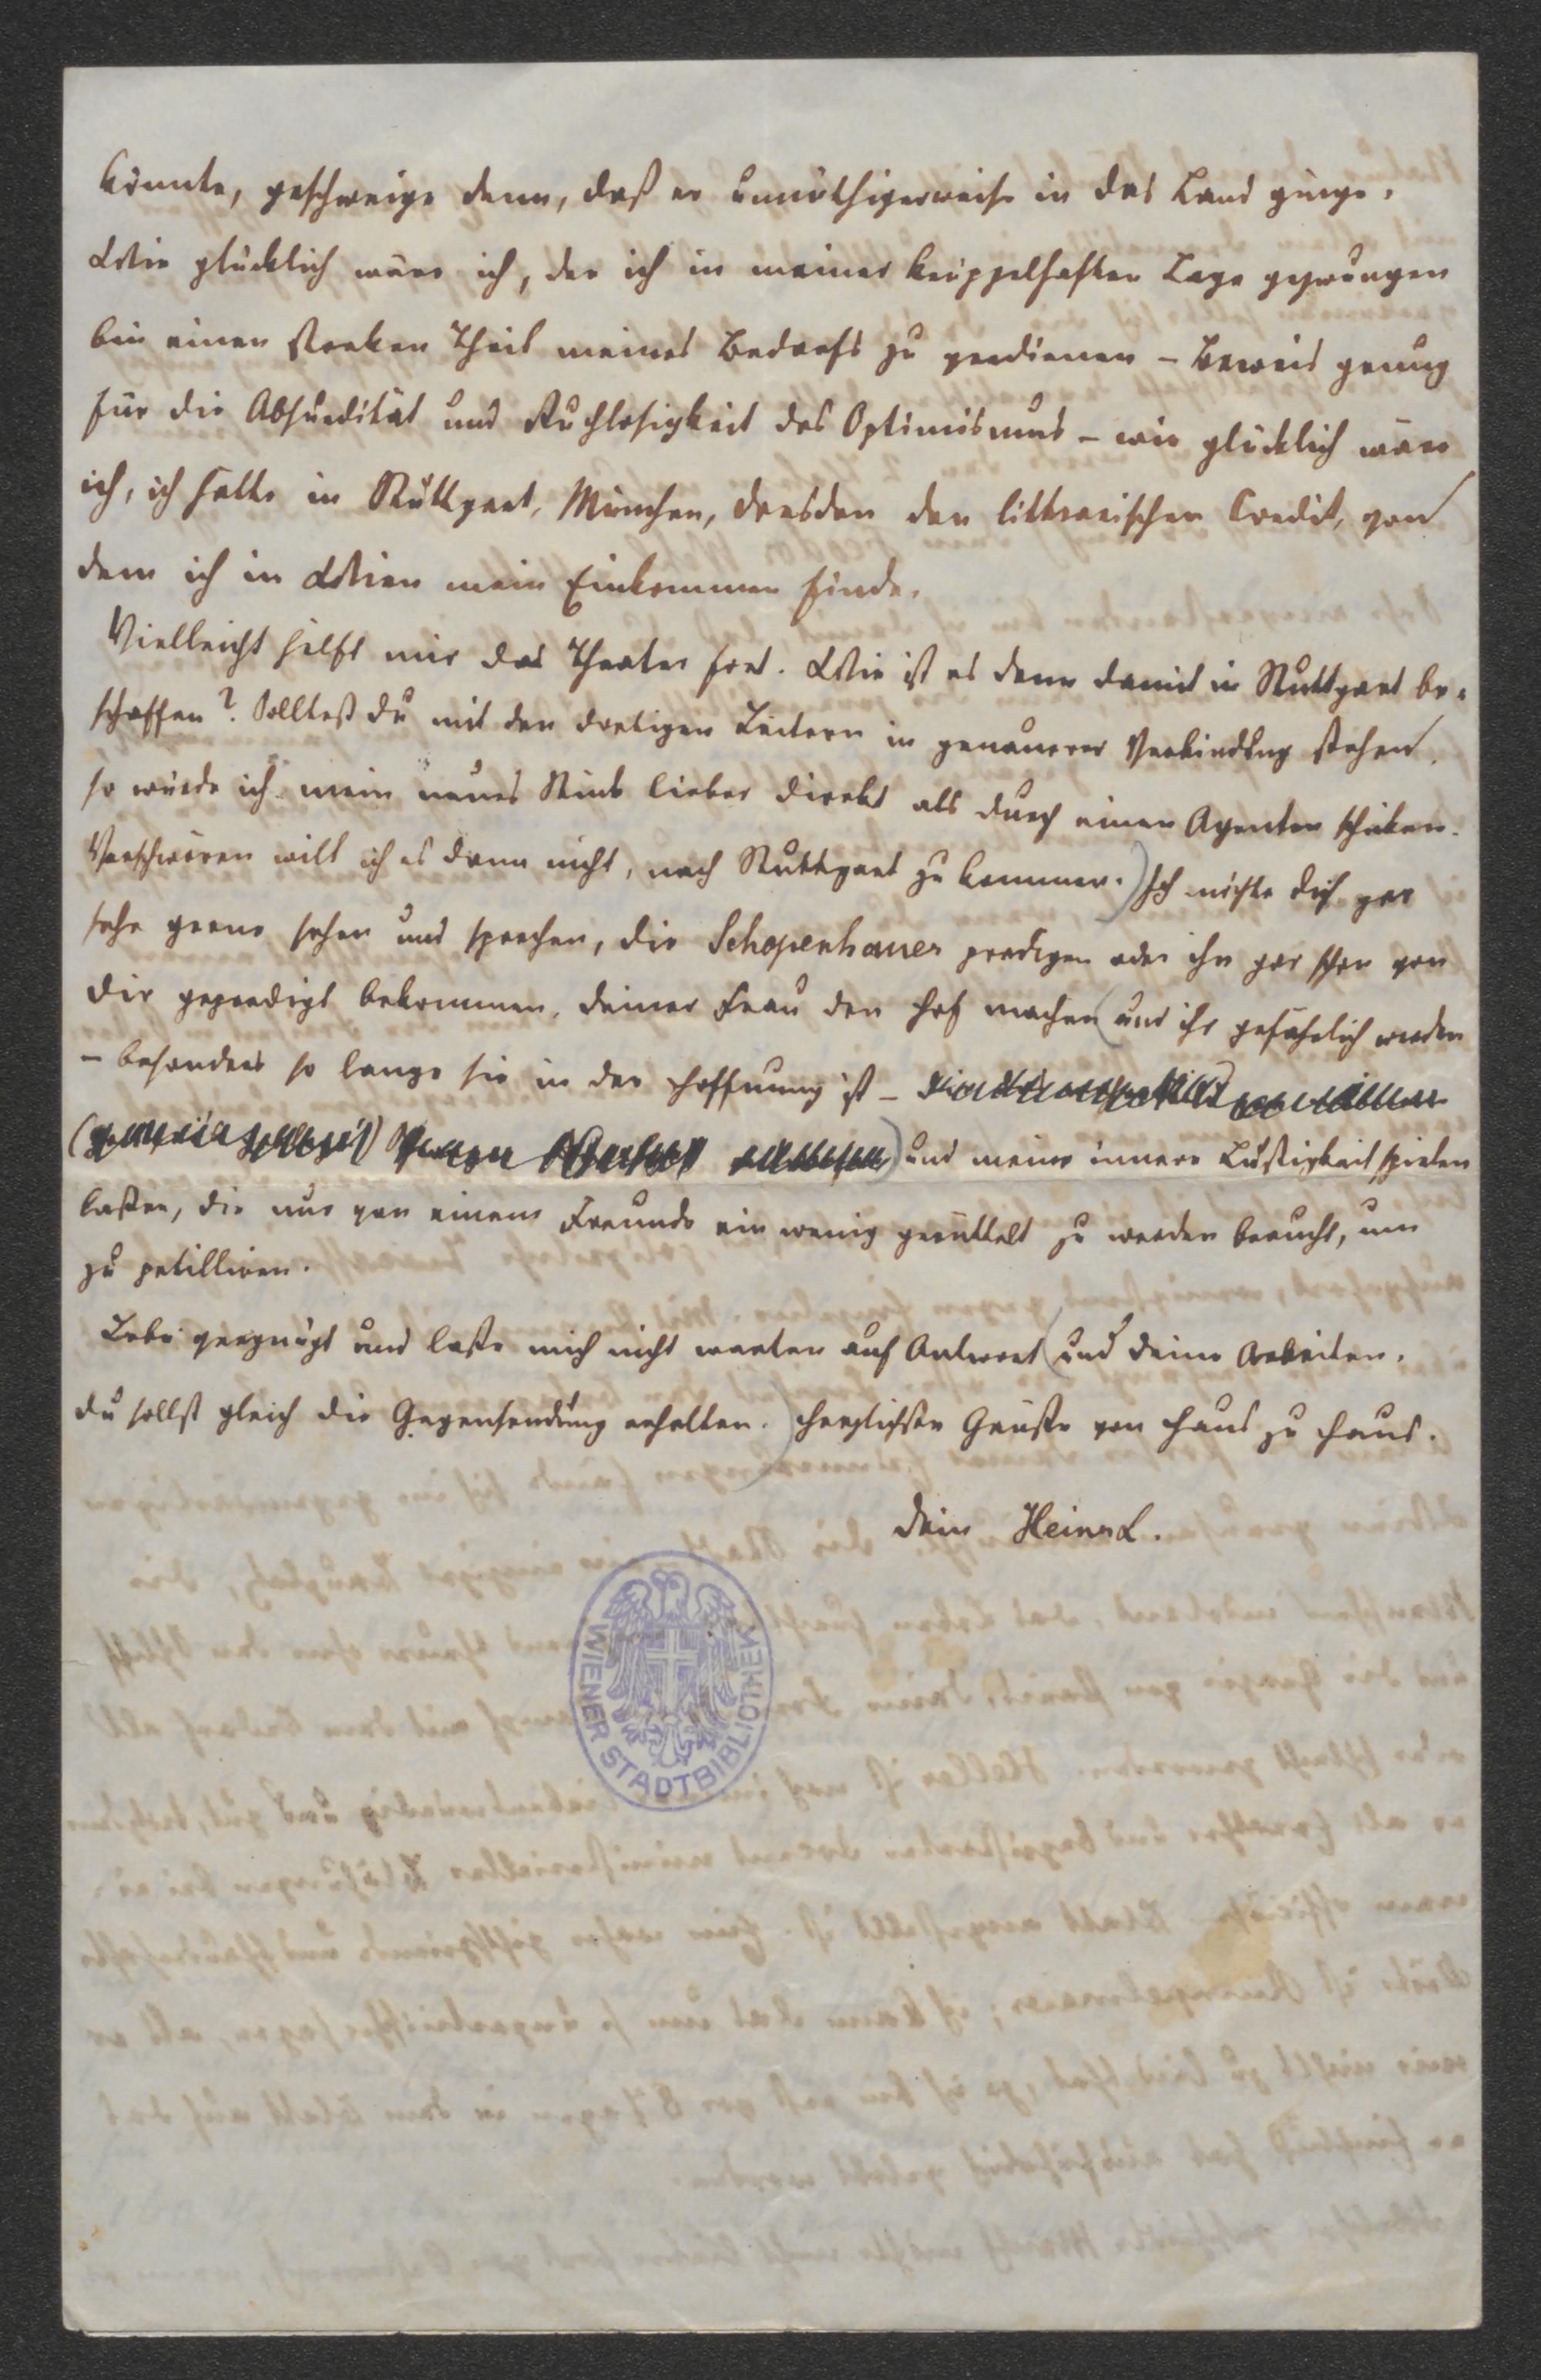 könnte, geschweige denn, daß er unnöthigerweise in das Land ginge.
Wie glücklich wäre ich, der ich in meiner krüppelhaften Lage gezwungen
bin einen starken Theil meines Bedarfs zu verdienen – Beweis genug
für die Absurdität und Ruchlosigkeit des Optimismus – wie glücklich wäre
ich, ich hätte in Stuttgart, München, Dresden den litterarischen Credit, von
dem ich in Wien mein Einkommen finde.
Vielleicht hilft mir das Theater fort. Wie ist es denn damit in Stuttgart be-
schaffen? Solltest du mit den dortigen Leitern in genauerer Verbindung stehen,
so würde ich mein neues Stück lieber direkt als durch einen Agenten schicken.
Verschwören will ich es dann nicht, nach Stuttgart zu kommen.) Ich möchte dich gar
sehr gerne sehen und sprechen, dir Schopenhauer predigen oder ihn gar schon von
dir gepredigt bekommen, deiner Frau den Hof machen (und ihr gefährlich werden
– besonders so lange sie in der Hoffnung ist –
) und meine innere Lustigkeit spielen
lassen, die nur von einem Freunde ein wenig gerüttelt zu werden braucht, um
zu petilliren.
Lebe vergnügt und lasse mich nicht warten auf Antwort (und deine Arbeiten.
du sollst gleich die Gegensendung erhalten.) Herzlichste Grüße von Haus zu Haus.
Dein HeinrL.
WIENER STADTBIBLIOTHEK